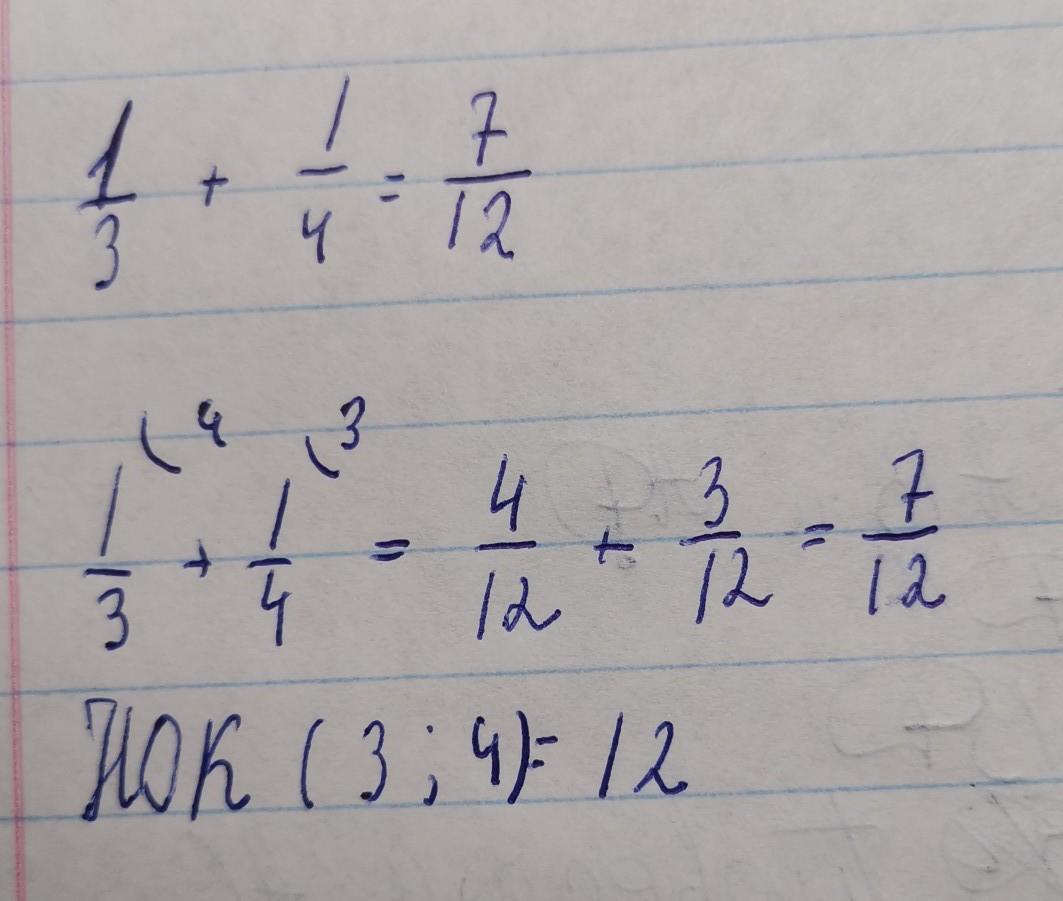 1/3 + 1/4 = 7/12
1/3 (4 + 1/4 (3 = 4/12 + 3/12 = 7/12
НОК (3; 4) = 12